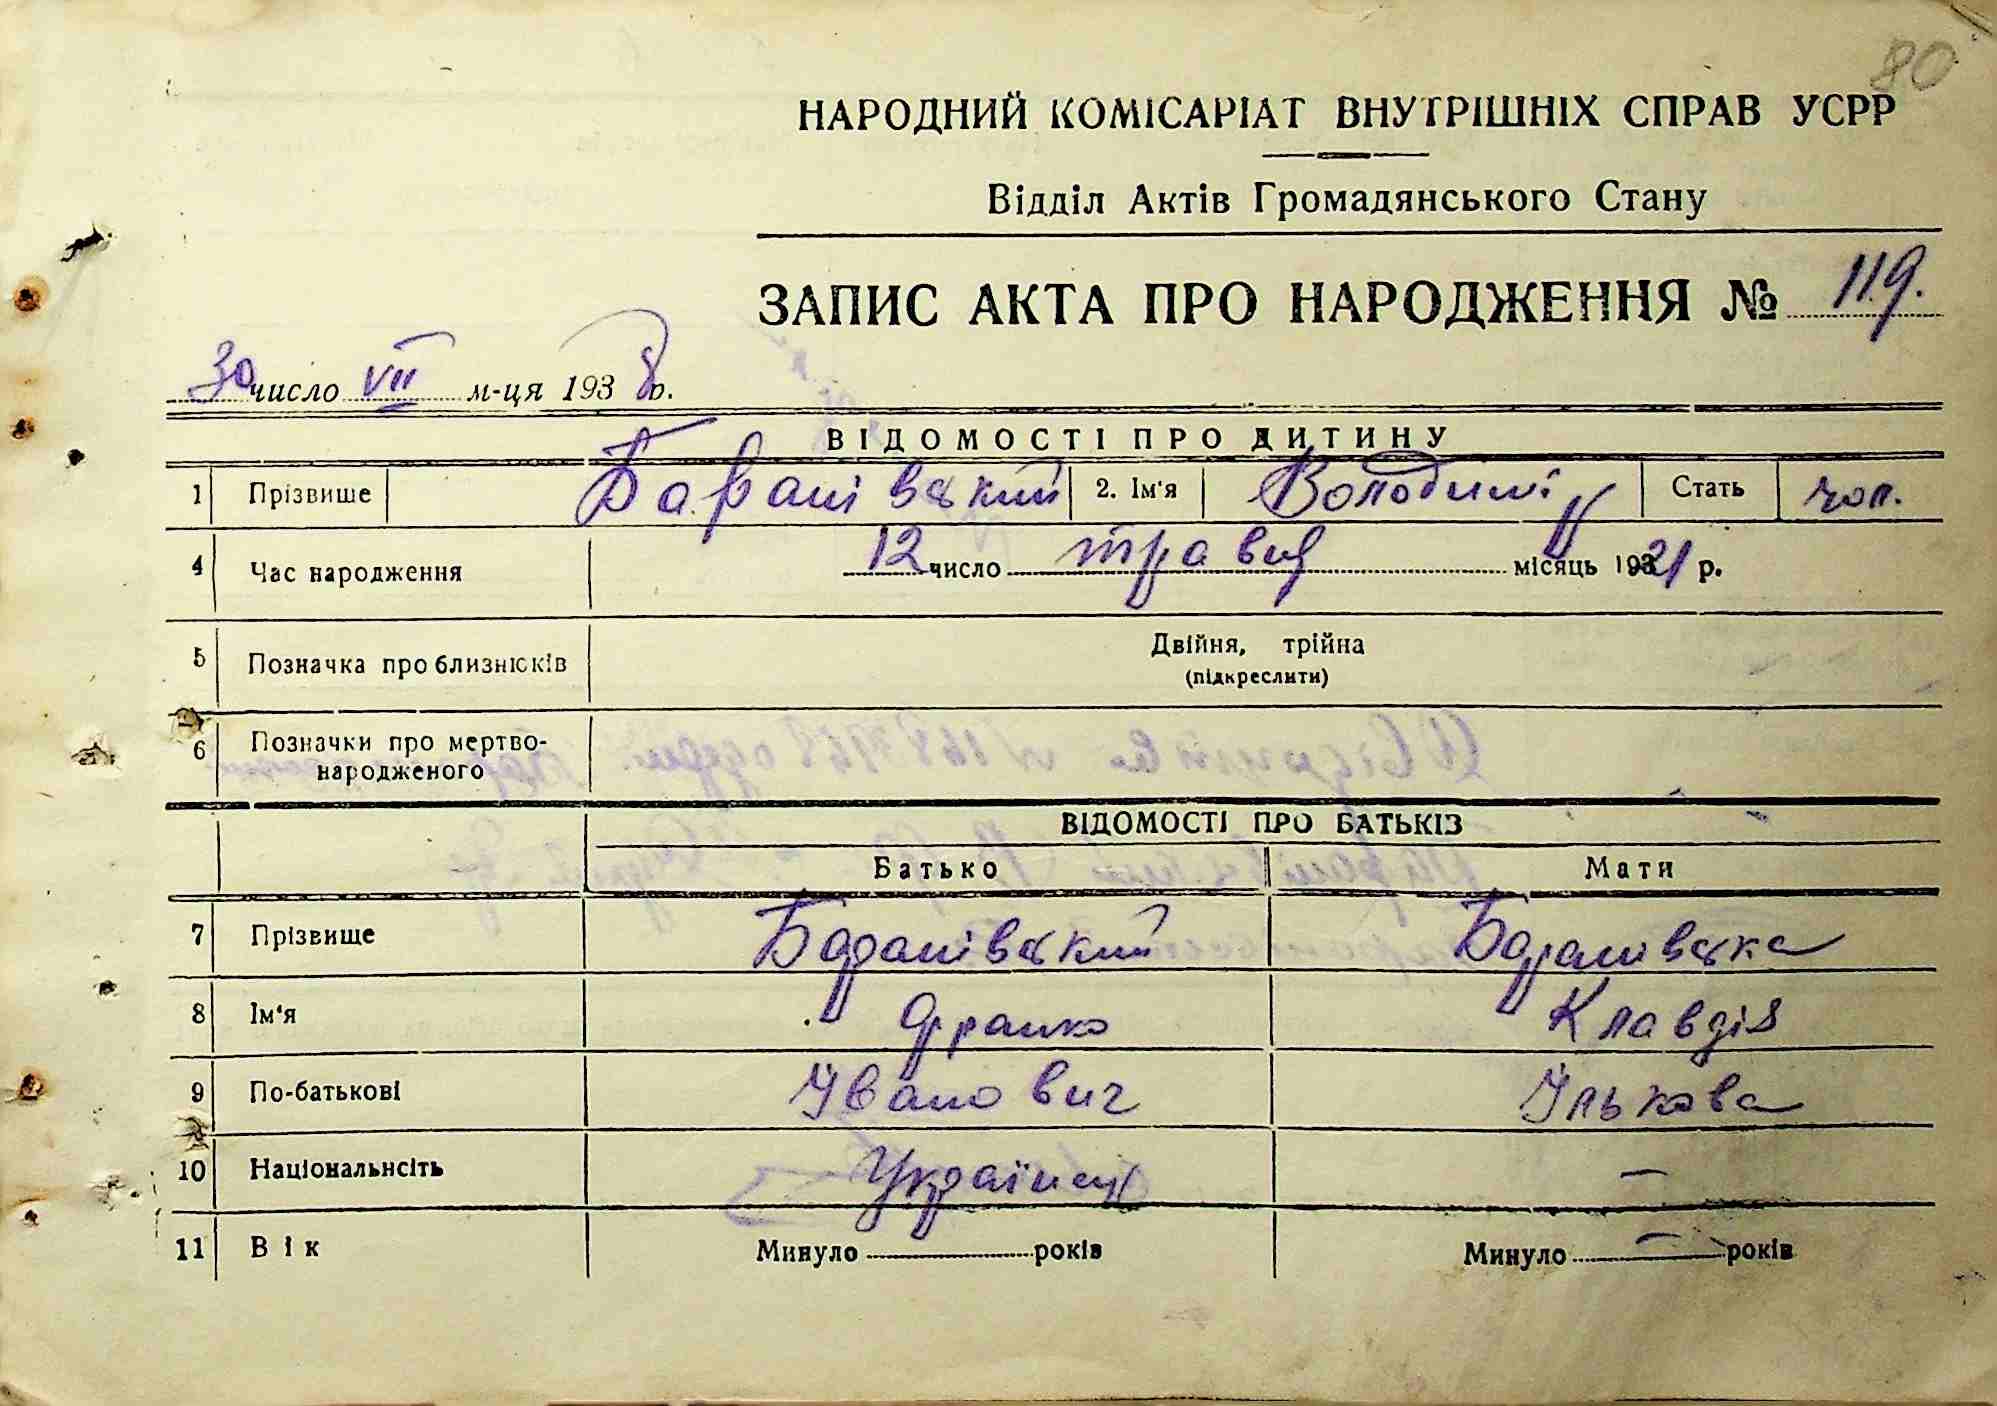 80
НАРОДНИЙ КОМІСАРІАТ ВНУТРІШНІХ СПРАВ УСРР
Відділ Актів Громадянського Стану
ЗАПИС АКТА ПРО НАРОДЖЕННЯ № 119.
30 число VII м-ця 1938 р.
ВІДОМОСТІ ПРО ДИТИНУ
1 Прізвише Баранівський 2. Ім'я Володимир Стать чол.
4 Час народження 12 число травня місяць 1921 р.
5 Позначка про близнюків Двійня, трійна
(підкреслити)
6 Позначки про мертво-
народженого
ВІДОМОСТІ ПРО БАТЬКІВ
Батько Мати
7 Прізвище Баранівський Баранівська
8 Ім'я Франко Клавдія
9 По-батькові Іванович Ількова
10 Національнсіть Українці —
11 Вік Минуло років Минуло — років